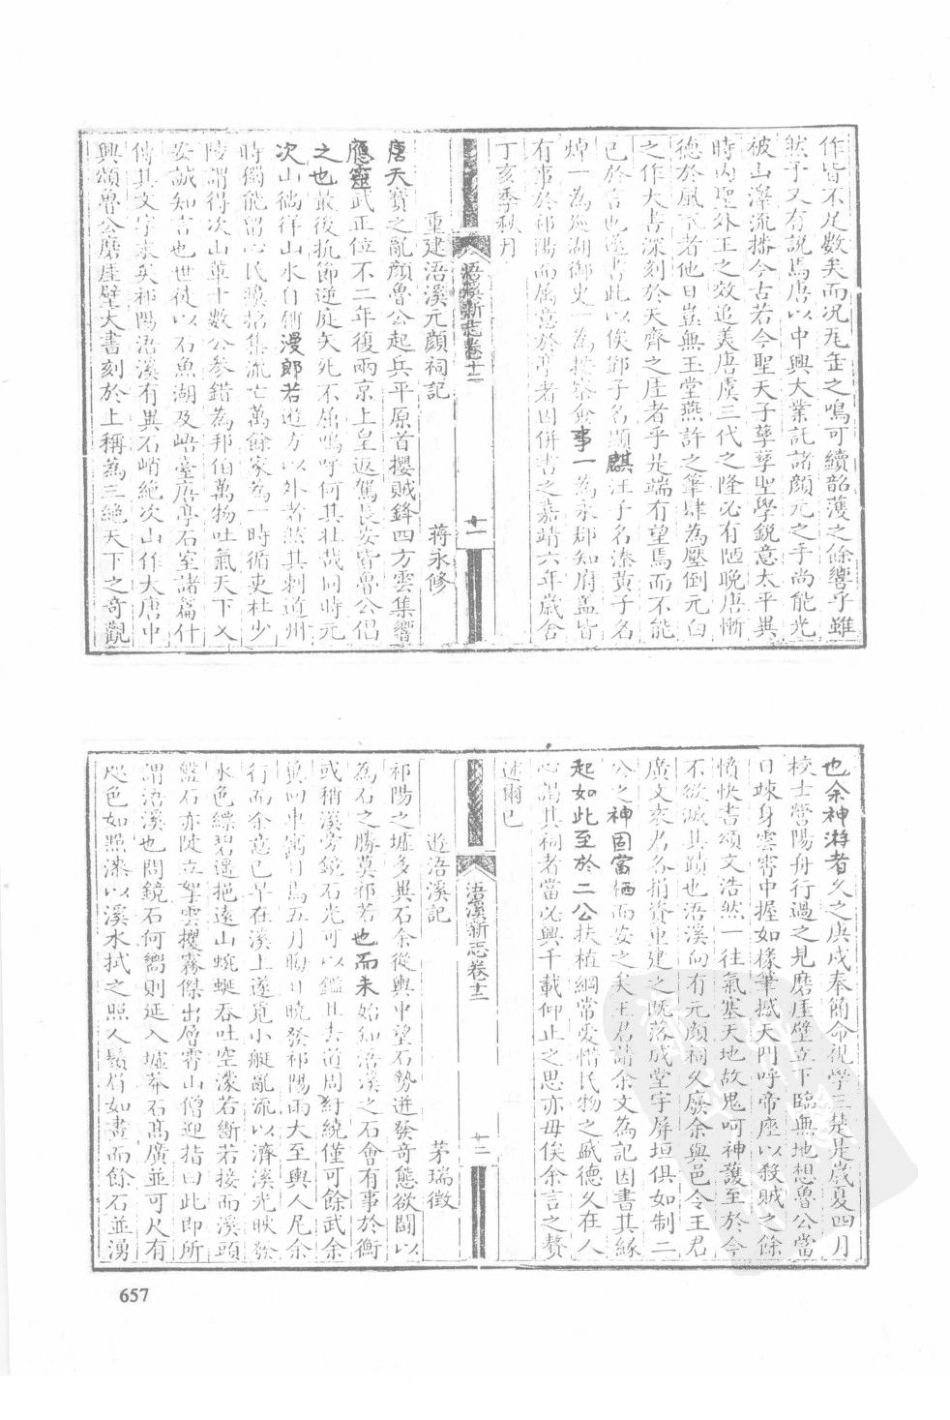 作皆不足數矣而况瓦缶之鳴可續韶濩之餘響乎雖
然予又有説焉唐以中興大業託諸顔元之手尚能光
被山澤流播今古若今聖天子孳孳聖學鋭意太平異
時内聖外王之效追美唐虞三代之隆必有陋晚唐慚
德於風下者他日豈無玉堂燕許之筆肆為壓倒元白
之作大書深刻於天齊之厓者乎是端有望焉而不能
已於言也遂書此以俟鄧子名顯麒汪子名溱黄子名
焯一為巡湖御史一為按察僉事一為永郡知府盖皆
有事於祁陽而属意於亭者因併書之嘉靖六年歲舍
丁亥季秋月
浯溪新志卷十二
十一
重建浯溪元顔祠記
蒋永修
唐天寶之亂顔魯公起兵平原首攖賊鋒四方雲集響
應靈武正位不二年復兩京上皇返駕長安皆魯公倡
之也最後抗節逆庭矢死不屈嗚呼何其壯哉同時元
次山徜徉山水自號漫郎若遊方以外者然其刺道州
時獨能留心民瘼招集流亡萬餘家為一時循吏杜少
陵謂得次山輩十數公參錯為邦伯萬物吐氣天下乂
安誠知言也世徒以石魚湖及峿臺𢈪亭石室諸篇什
傳其文字末矣祁陽浯溪有異石峭絶次山作大唐中
興頌魯公磨厓壁大書刻於上稱為三絶天下之奇觀
也余神游者久之庚戌奉簡命視學三楚是歲夏四月
校士營陽舟行過之見磨厓壁立下臨無地想魯公當
日竦身雲霄中握如椽筆撼天門呼帝座以殺賊之餘
憤快書頌文浩然一往氣塞天地故鬼呵神護至於今
不欲滅其蹟也浯溪向有元顔祠久廢余與邑令王君
廣文衣君各捐資重建之既落成堂宇屏垣俱如制二
公之神固當栖而安之矣王君請余文為記因書其緣
起如此至於二公扶植綱常愛惜民物之盛德久在人
心謁其祠者當必興千載仰止之思亦毋俟余言之贅
述爾已
浯溪新志卷十二
十二
遊浯溪記
茅瑞徴
祁陽之墟多異石余從輿中望石勢迸發奇態欲鬬以
為石之勝莫祁若也而未始知浯溪之石會有事於衡
或稱溪旁鏡石光可以鑑且去道周紆繞僅可餘武余
䔥四中寓目焉五月晦日曉發祁陽雨大至輿人尼余
行而余意已早在溪上遂覓小艇亂流以濟溪光映發
水色綜碧遥挹遠山蜿蜒吞吐空濛若斷若接而溪頭
盤石亦陡立拏雲攫霧傑出層霄山僧迎指曰此即所
謂浯溪也問鏡石何嚮則延入墟莽石髙廣並可尺有
咫色如點漆以溪水拭之照人鬚眉如畫而餘石並湧
657